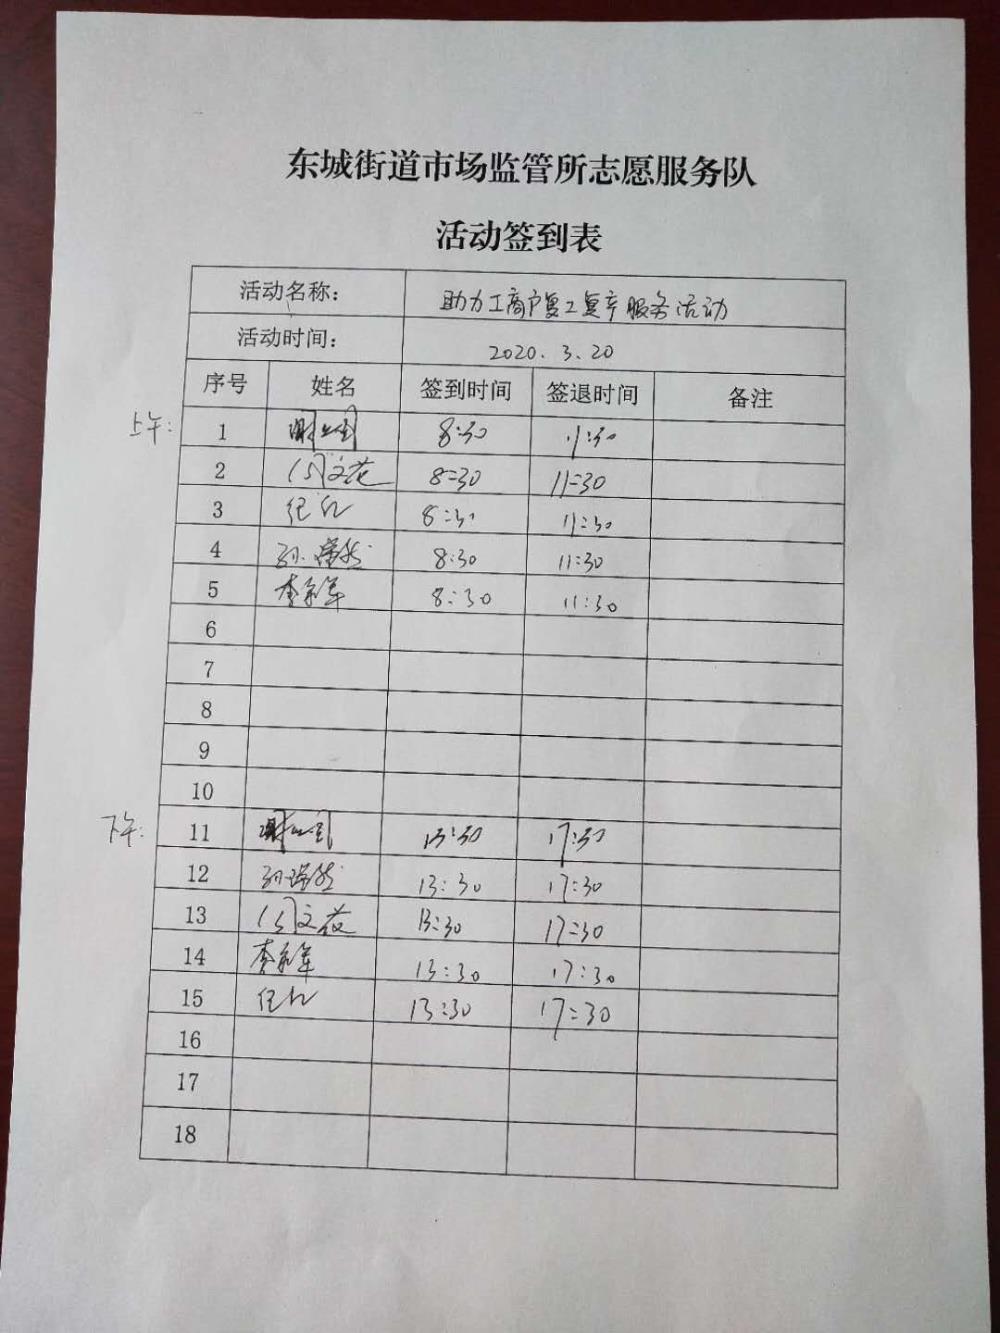 东城街道市场监管所志愿服务队
活动签到表
活动名称： 助力工商户复工复产服务活动
活动时间： 2020.3.20
序号 姓名 签到时间 签退时间 备注
上午：
1 8:30 11:30
2 文花 8:30 11:30
3 纪红 8:30 11:30
4 孙瑞然 8:30 11:30
5 李永军 8:30 11:30
6
7
8
9
10
下午：
11 13:30 17:30
12 孙瑞然 13:30 17:30
13 文花 13:30 17:30
14 李永军 13:30 17:30
15 纪红 13:30 17:30
16
17
18